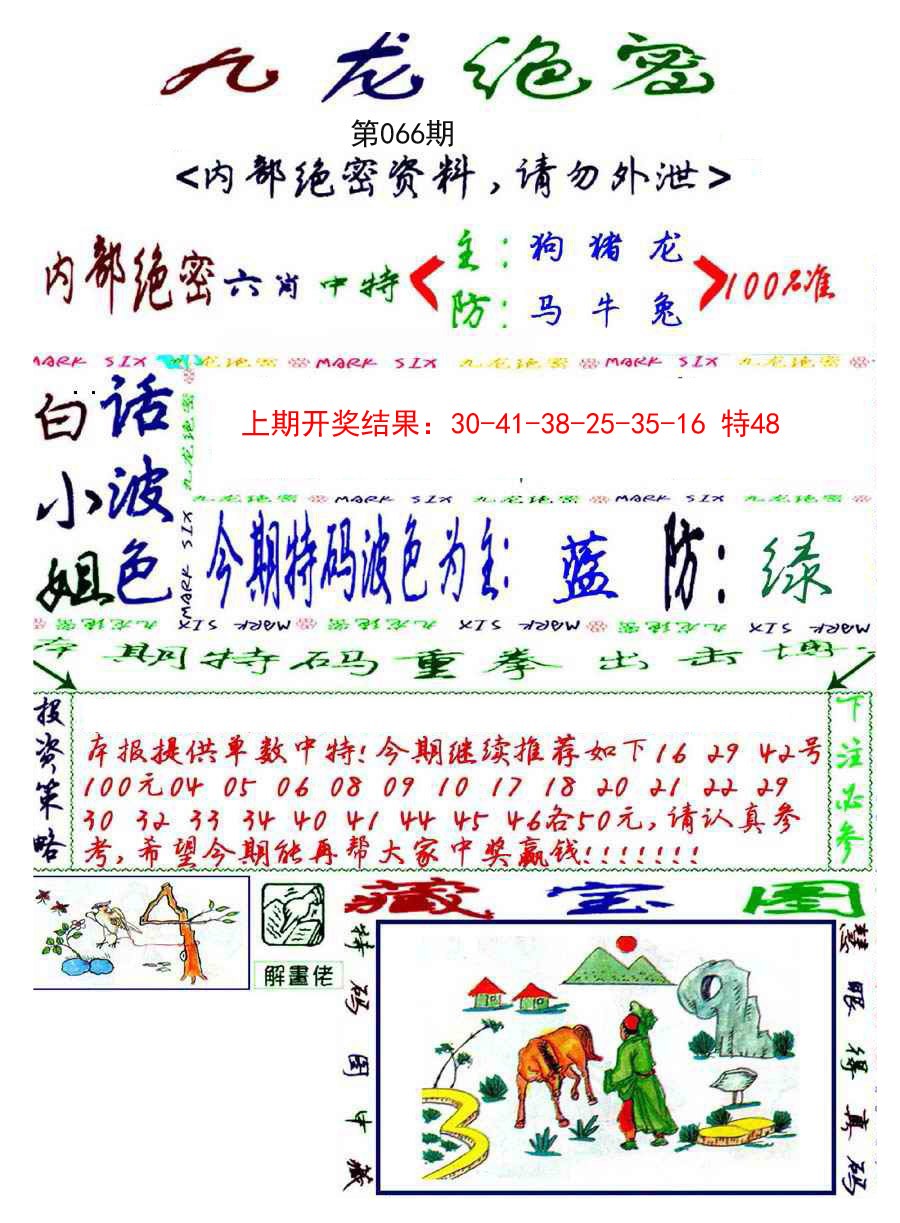 九龙绝密
第066期
<内部绝密资料，请勿外泄>
内部绝密六肖中特
主：狗猪龙
防：马牛兔
100%准
MARK SIX 九龙绝密 MARK SIX 九龙绝密 MARK SIX 九龙绝密
白小姐
话波色
九龙绝密
MARK SIX
上期开奖结果：30-41-38-25-35-16 特48
九龙绝密 MARK SIX 九龙绝密 MARK SIX 九龙绝密
今期特码波色为主：蓝 防：绿
九龙绝密 MARK SIX 九龙绝密 MARK SIX 九龙绝密 MARK SIX
本期特码重拳出击博
投资策略
本报提供单数中特！今期继续推荐如下16 29 42号
100元04 05 06 08 09 10 17 18 20 21 22 29
30 32 33 34 40 41 44 45 46各50元，请认真参
考，希望今期能再帮大家中奖赢钱！！！！！！！
下注必参
解畫佬
藏宝图
特码图中藏
慧眼得真码